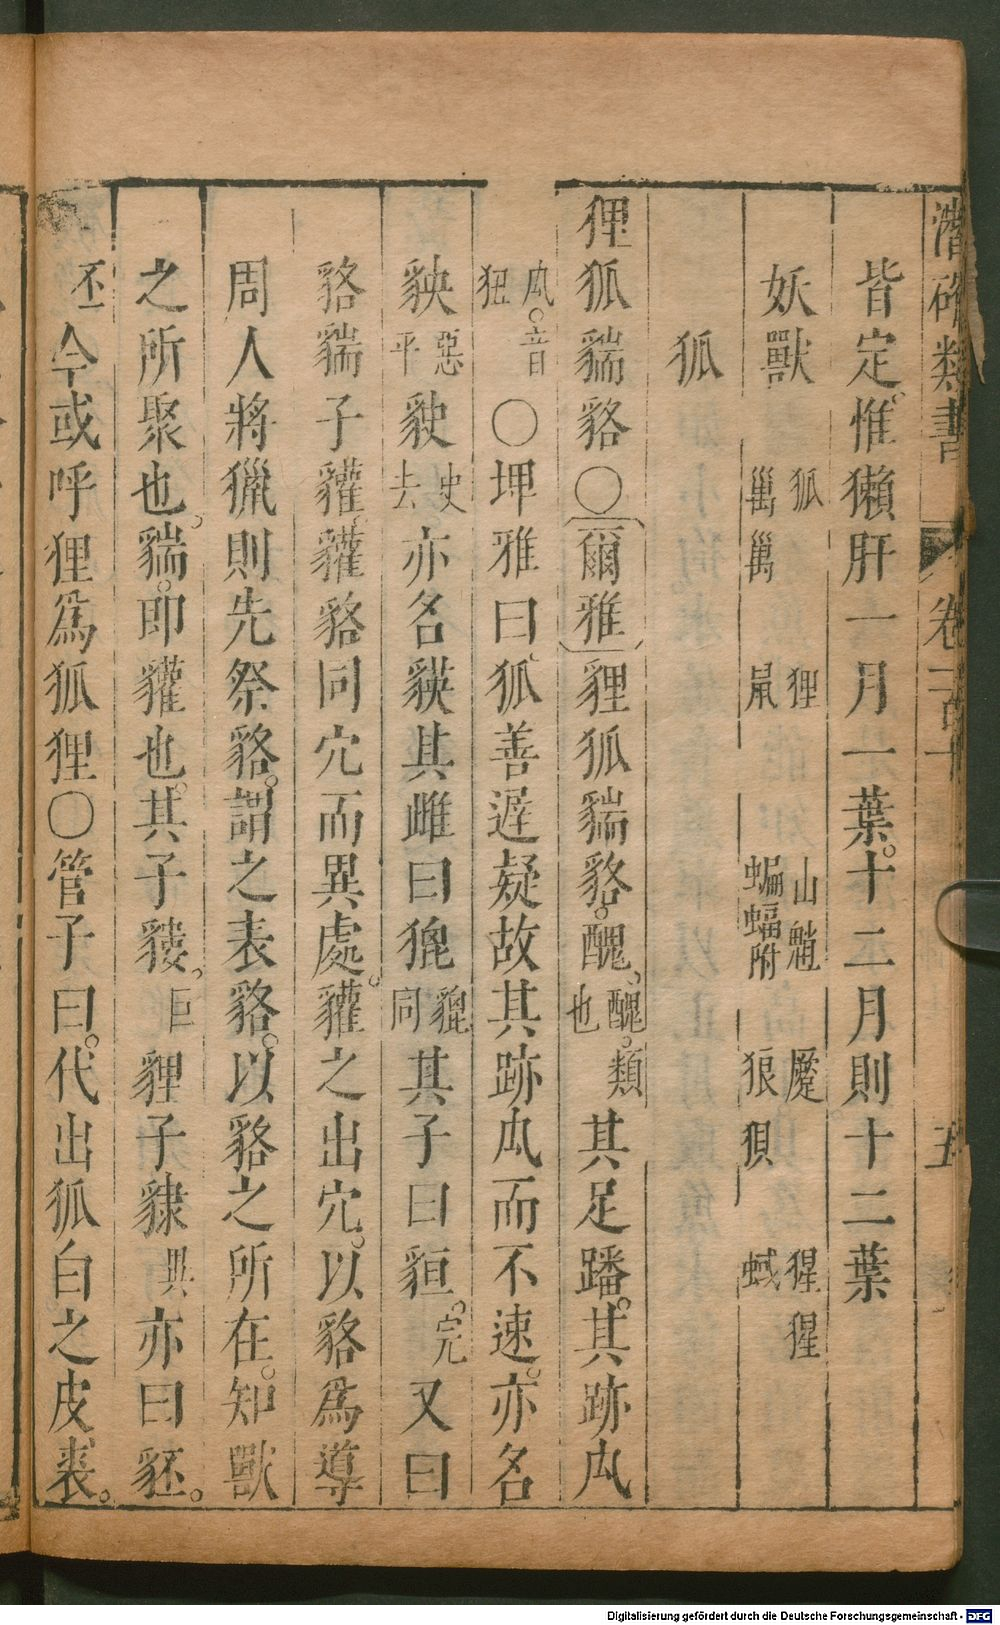 潛確類書 卷一百十 五
皆定惟獺肝一月一葉十二月則十二葉
妖獸 狐 狸 山魈 魘 猩猩
𤡔𤡔 鼠 蝙蝠附 狼 狽 蜮
狐
狸狐貒貉○爾雅貍狐貒貉醜醜類也其足蹯其跡㕙
㕙音狃○埤雅曰狐善遲疑故其跡㕙而不速亦名
貁其雌曰㹶貔同其子曰貆完又曰
貉貒子貛貛貉同穴而異處貛之出穴以貉爲導
周人將獵則先祭貉謂之表貉以貉之所在知獸
之所聚也貒即貛也其子貗巨貍子隸異亦曰豾
丕今或呼狸爲狐狸○管子曰代出狐白之皮裘
Digitalisierung gefördert durch die Deutsche Forschungsgemeinschaft - DFG